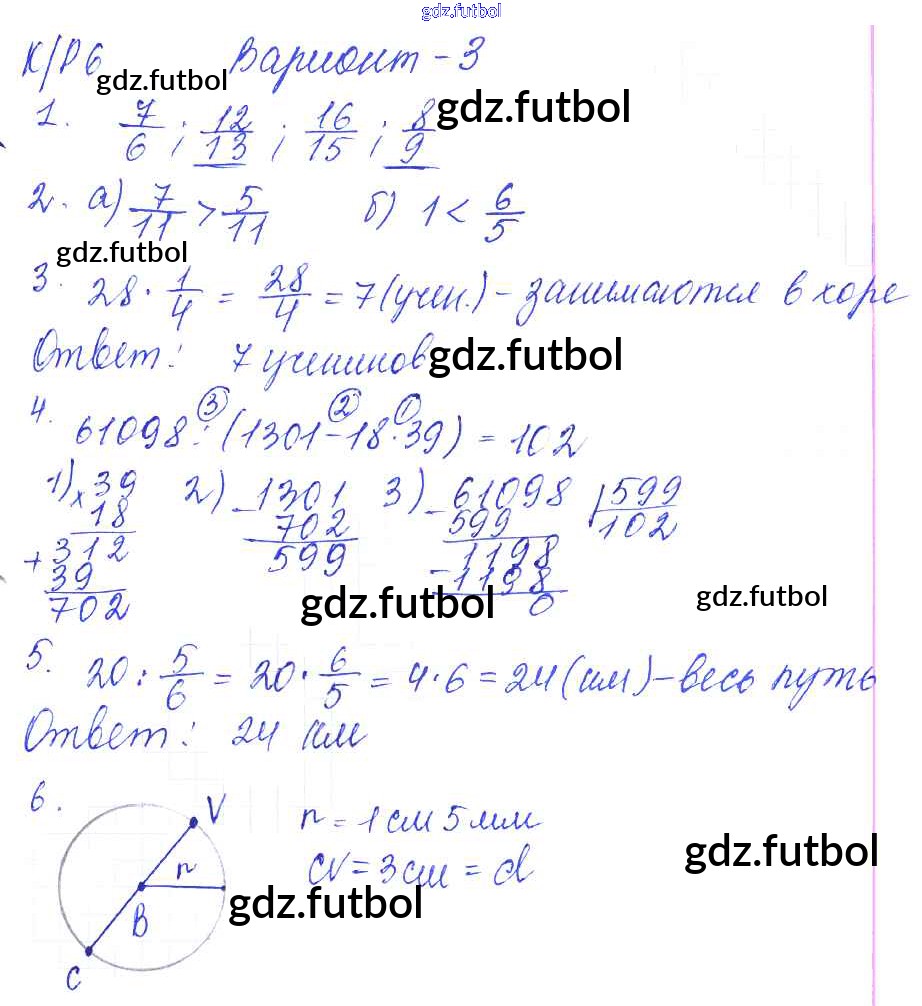 gdz.futbol
К/Р 6 Вариант - 3
gdz.futbol
1. 7/6 ; 12/13 ; 16/15 ; 8/9 gdz.futbol
2. а) 7/11 > 5/11 б) 1 < 6/5
gdz.futbol
3. 28 · 1/4 = 28/4 = 7 (учен.) - занимаются в хоре
Ответ: 7 учеников gdz.futbol
4. 3 2 1
61098 : (1301 - 18 · 39) = 102
1) × 39 2) - 1301 3) - 61098 | 599
18 702 599 102
+ 312 599 - 1198
39 - 1198
702 0
gdz.futbol gdz.futbol
5. 20 : 5/6 = 20 · 6/5 = 4 · 6 = 24 (км) - весь путь
Ответ: 24 км
6. V r = 1 см 5 мм
r CV = 3 см = d gdz.futbol
B gdz.futbol
C